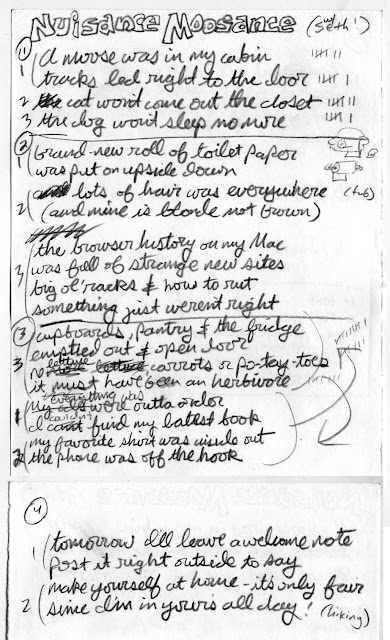 Nuisance Moosance (w/ Seth!)
(1)
1 A moose was in my cabin
tracks led right to the door
2 cat won't come out the closet
3 the dog won't sleep no more
(2)
1 brand-new roll of toilet paper
was put on upside down
lots of hair was everywhere (tub)
2 (and mine is blonde not brown)
the browser history on my Mac
3 was full of strange new sites
big ol' racks & how to rut
something just weren't right
(3) cupboards, pantry & the fridge
emptied out & open door
lettuce
3 no lettuce carrots or po-tay-toes
it must have been an herbivore
everything was
1 My were outta order
couldn't
I can't find my latest book
my favorite shirt was inside out
2 the phone was off the hook
4
1 tomorrow I'll leave a welcome note
post it right outside to say
make yourself at home - it's only fair
2 since I'm in yours all day! (hiking)